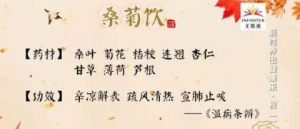 桑菊饮
INFINITUS
无限极
【药材】 桑叶 菊花 桔梗 连翘 杏仁
甘草 薄荷 芦根
【功效】 辛凉解表 疏风清热 宣肺止咳
——《温病条辨》